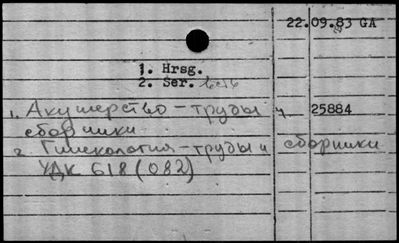 22.09.83 GA
1. Hrsg.
2. Ser.
1. Акушерство – труды и 25884
сборники
2 Гинекология – труды и сборники
УДК 618 (082)